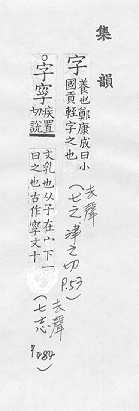 集韻
字養也鄭康成曰小國貢輕字之也
(去聲七之津之切P.53)
字㝒疾置切說文乳也从子在宀下一曰之也古作㝒文十
(去聲七志 P.484)